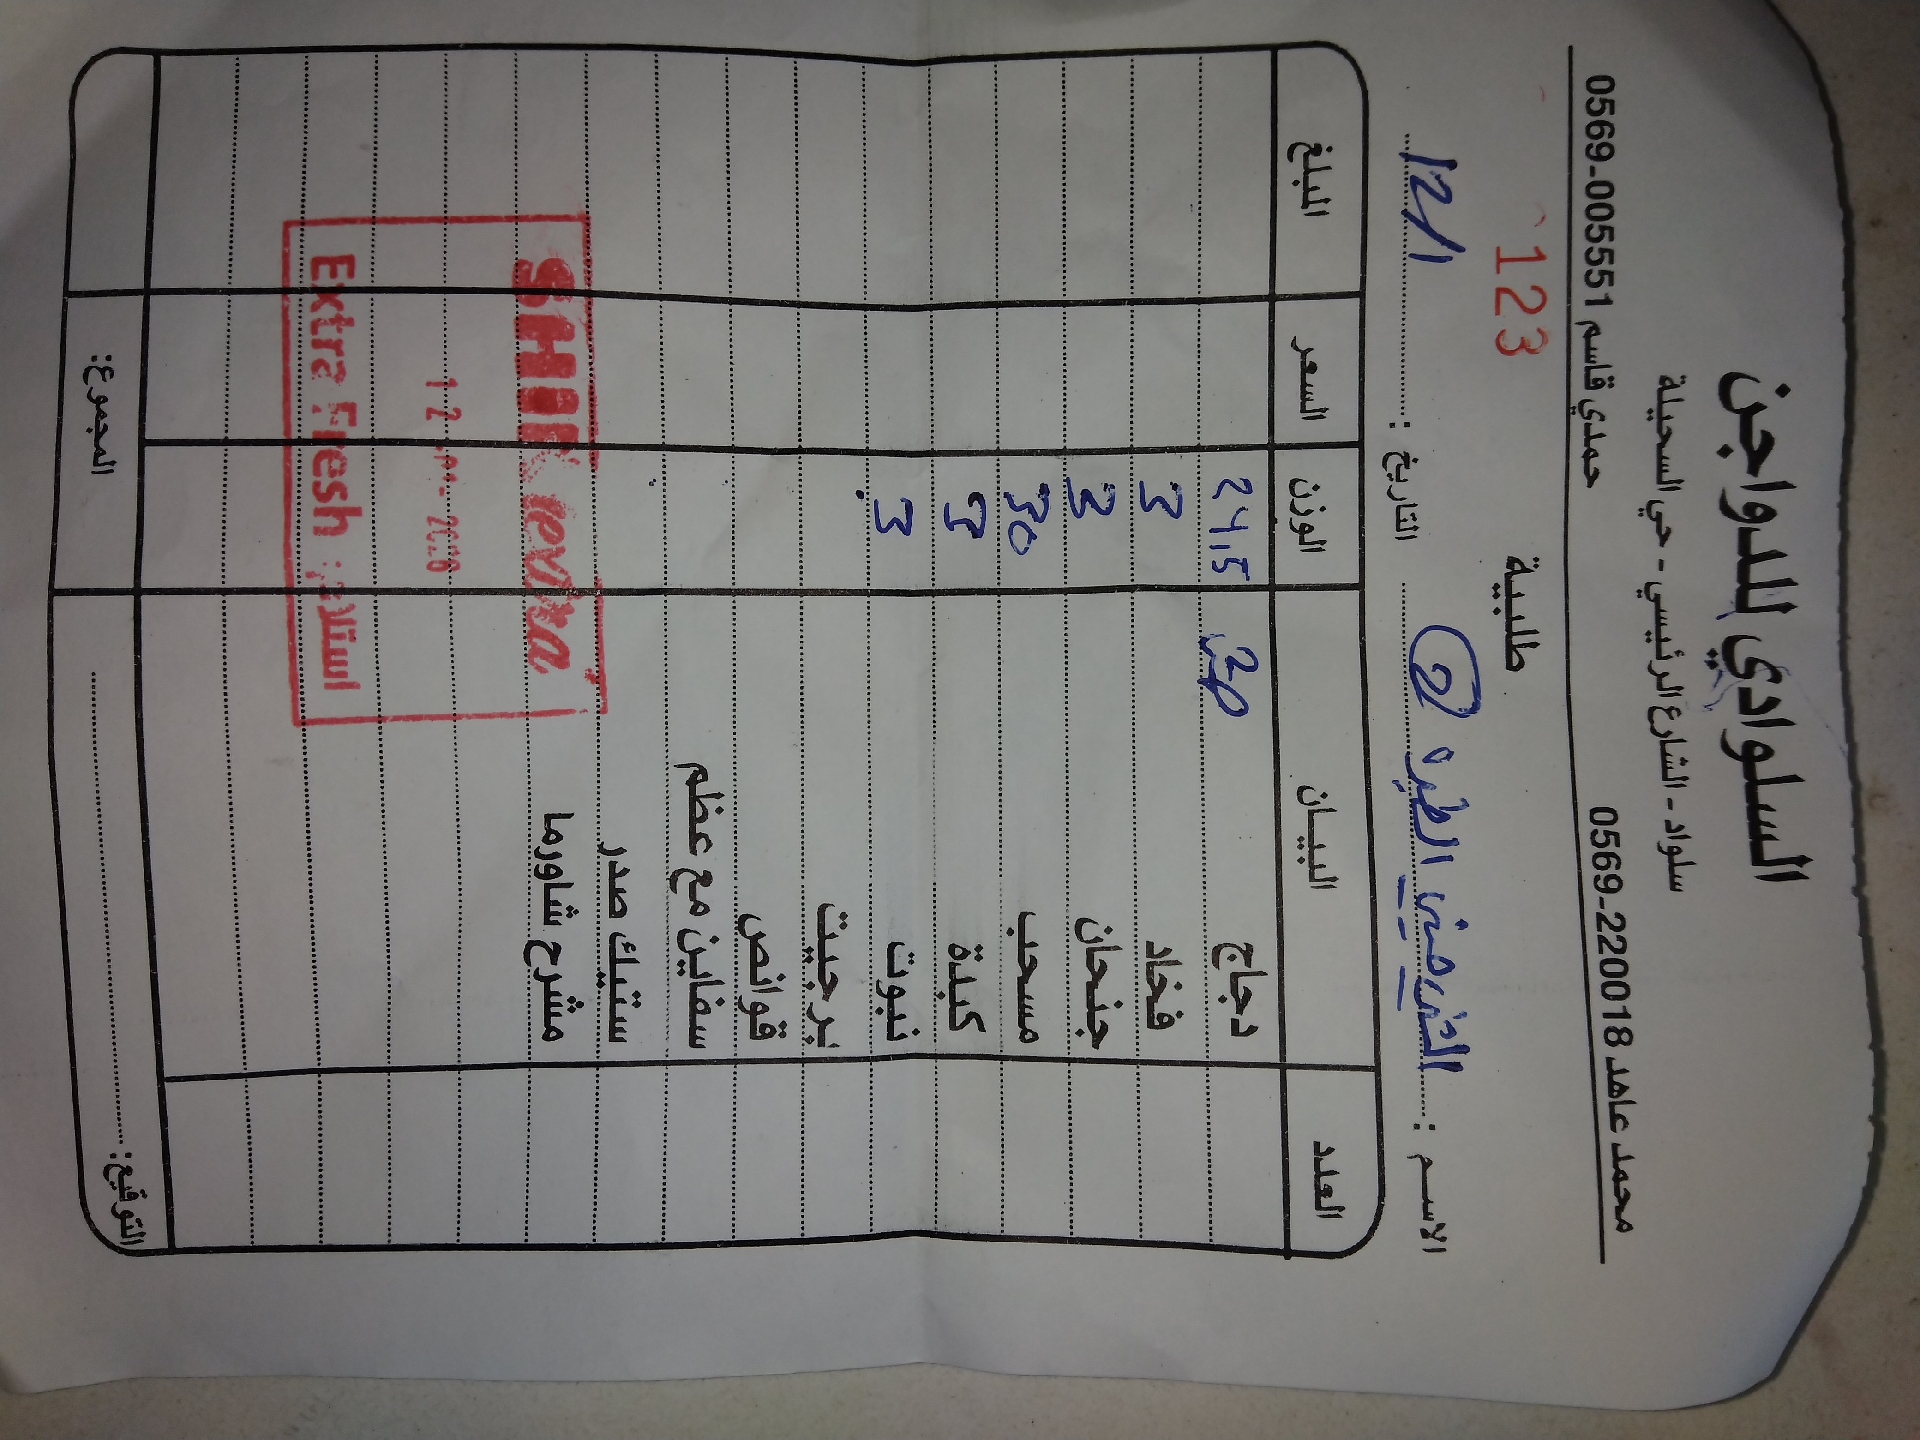 السلوادي للدواجن
سلواد - الشارع الرئيسي - حي السحيلة
محمد عاهد 0569-220018 حمدي قاسم 0569-005551
طلبية 123
الاسم : 2 التاريخ : 12/1
العدد البيان الوزن السعر المبلغ
دجاج 20 24,5
فخاد 3
جنحان 3
مسحب 30
كبدة 5
نبوت 3
برجيت
قوانص
سفاين مع عظم
ستيك صدر
مشرح شاورما
SHIK
12 2026
Extra Fresh استلام
التوقيع: المجموع: